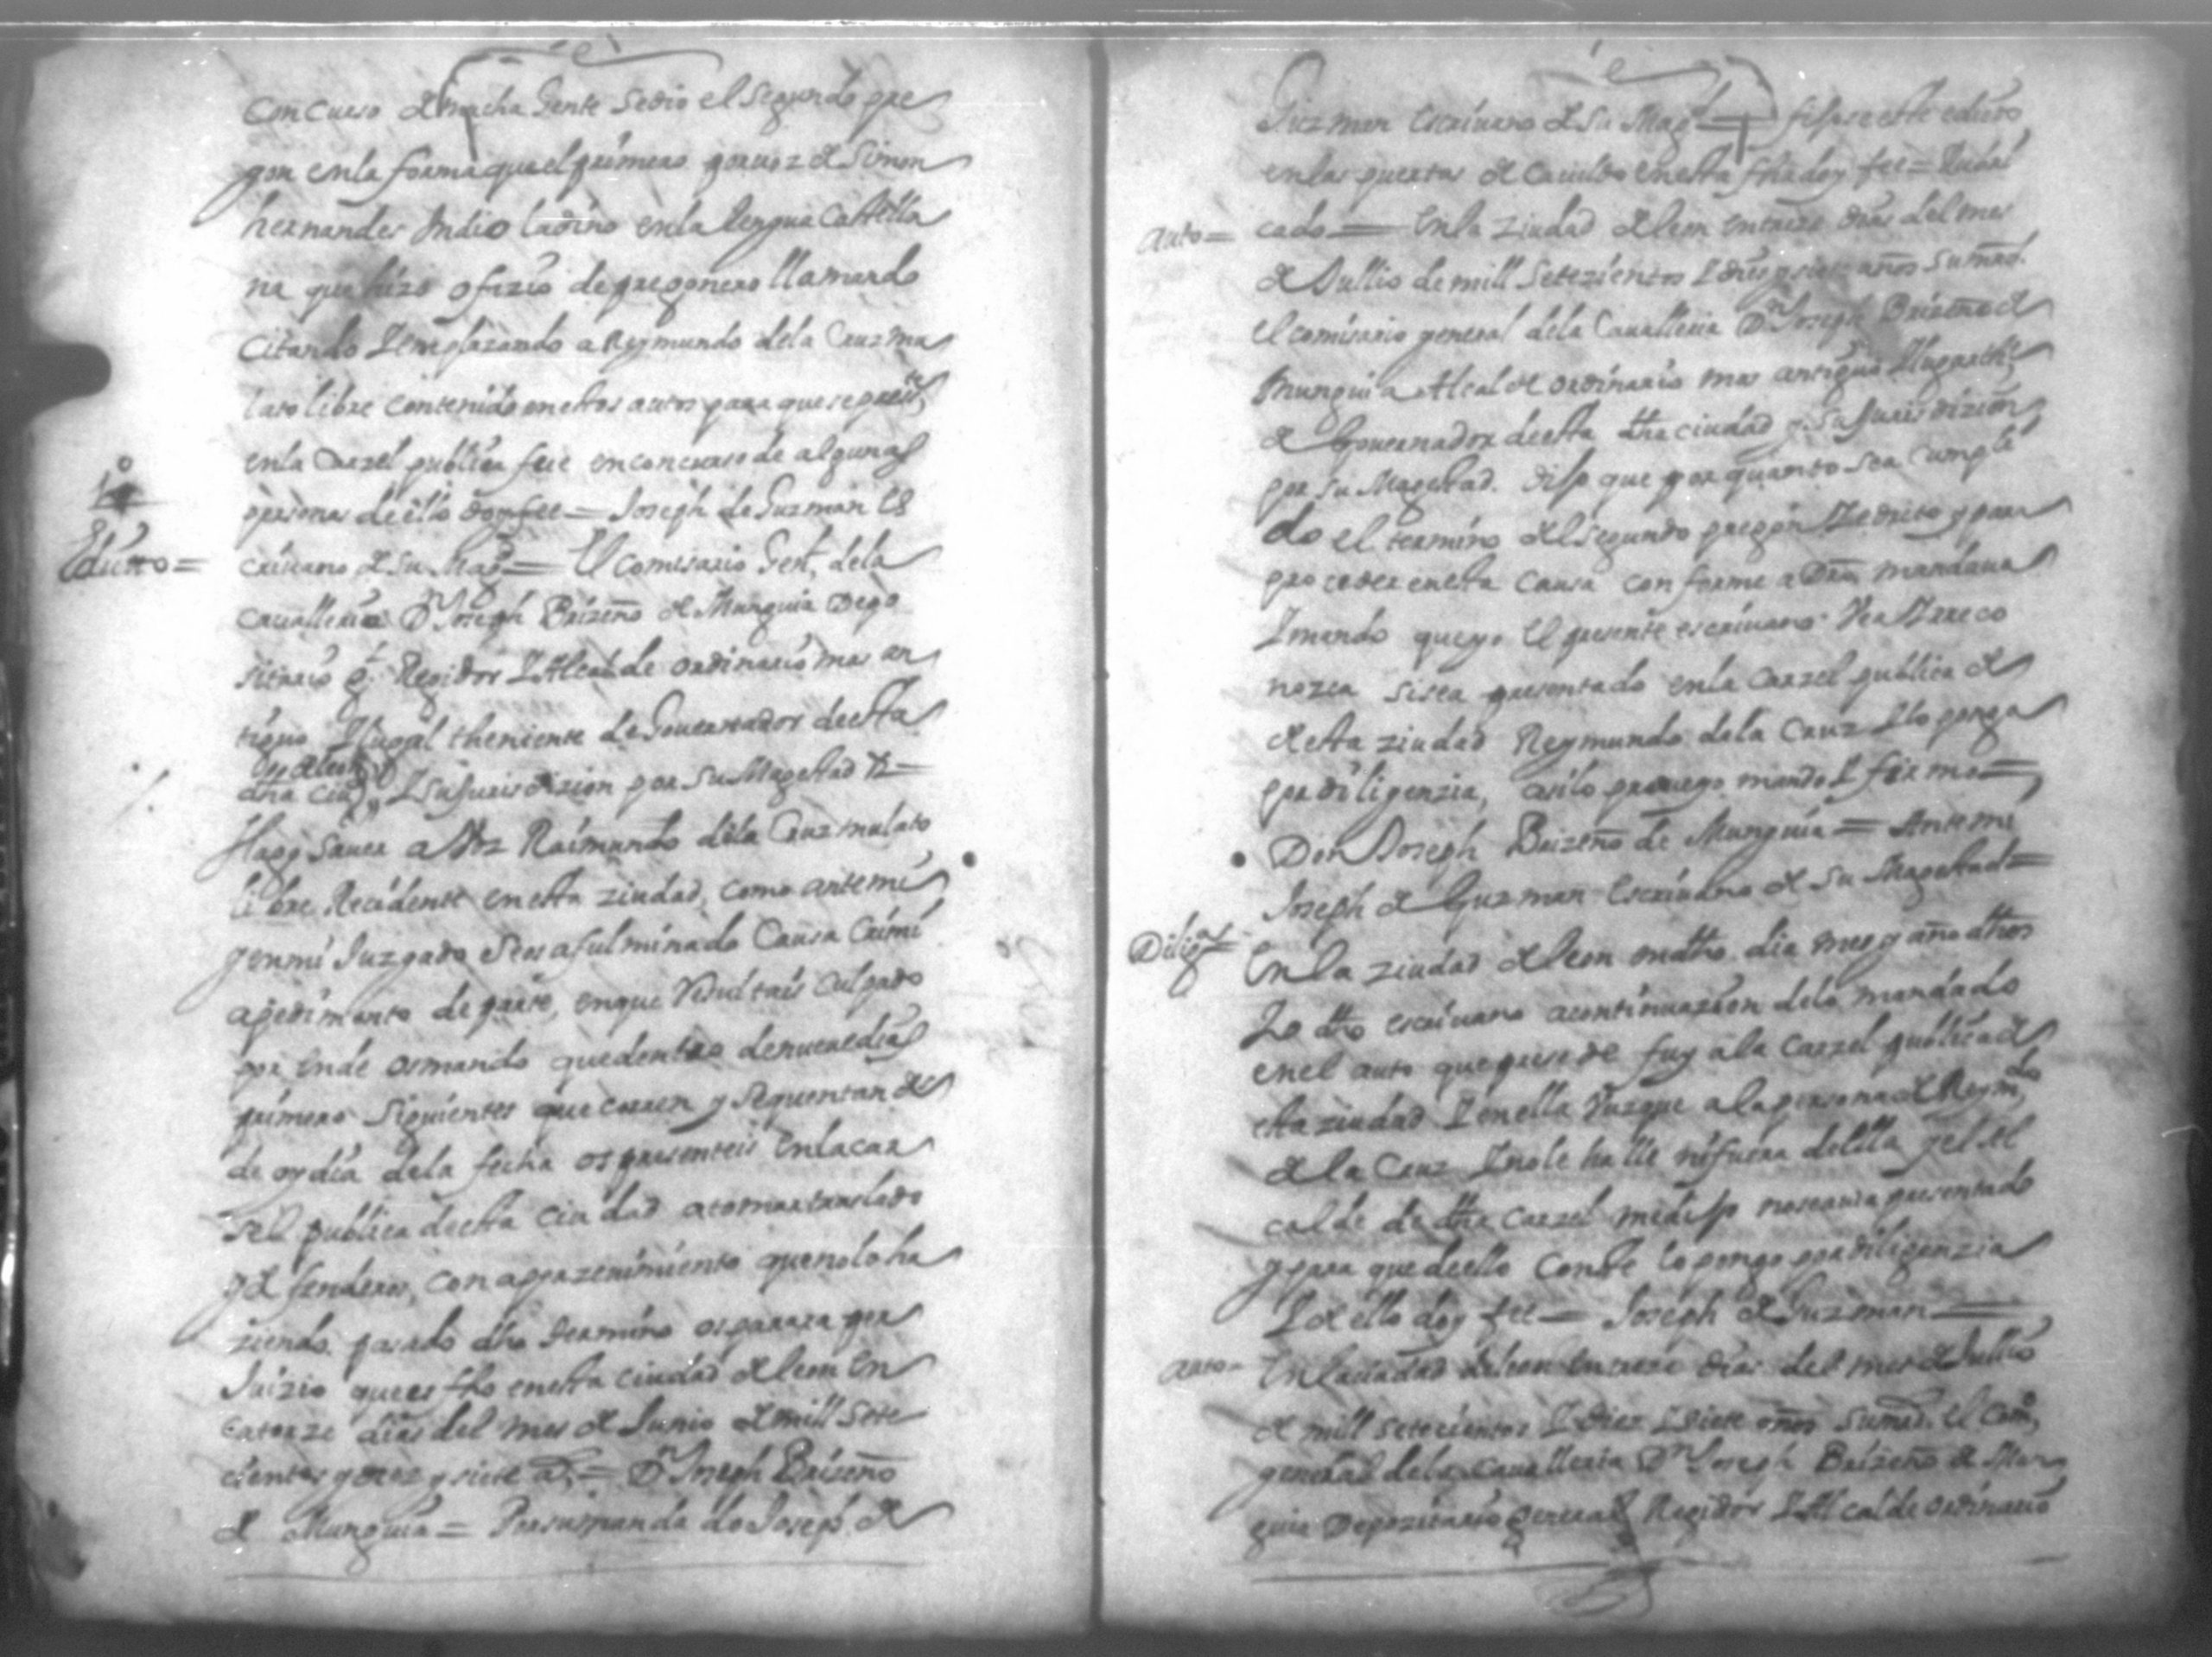 Concurso de mucha Gente se dio el segundo pre
gon en la forma que el primero por voz de Simon
hernandes Indio ladino en la lengua Castella
na que hizo ofizio de pregonero llamando
Citando I emplazando a Reymundo dela Cruz mu
lato libre contenido en estos autos para que se presste
en la Carzel publica fue en concurso de algunas
personas de ello doy fee = Joseph de Guzman Es
Edicto = crivano de su Magd = El Comisario Genl, dela
cavalleria Dn Joseph Brizeño de Munguia Depo
sitario gl Regidor I Alcalde ordinario mas an
tiguo I lugar theniente de Governador de esta
dha ciud I su Jurisdizion por su Magestad &a =
Hago saver a Vos Raimundo dela Cruz mulato
libre Recidente en esta ziudad, como ante mi
y en mi Juzgado se os a fulminado Causa Crimi
a pedimento de parte, en que Resultais culpado
por ende os mando que dentro de nueve dias
primeros siguientes que corren y se quentan des
de oy dia dela fecha os presenteis en la car
sel publica de esta ciudad a tomar traslado
y defenderos, con aperzevimiento que no lo ha
ziendo pasado dho termino os parara per
Juizio que es fho en esta ciudad de leon en
catorze dias del mes de Junio de mill sete
cientos y diez y siete as = Dn Joseph Brizeño
de Munguia = Por su mandado Joseph de
Guzman Escrivano de su Magd = fixose este edicto
en las puertas de Cavildo en esta fha doy fee = Rubri
Auto = cado = En la Ziudad de leon en treze dias del mes
de Jullio de mill setezientos I diez y siete años su md.
el comisario general dela Cavalleria Dn Joseph Brizeño de
Munguia Alcalde ordinario mas antiguo I lugar the
de Governador de esta dha ciudad y su Jurisdizion
por su Magestad. dijo que por quanto sea cumpli
do el termino del segundo pregon I edicto y para
proceder en esta causa conforme a dro mandava
I mando que yo el presente escrivano Vea I Reco
nozca si sea presentado en la Carzel publica de
de esta ziudad Reymundo dela Cruz I lo ponga
por diligenzia, asi lo proveyo mando I firmo =
Don Joseph Brizeño de Munguia = Ante mi
Joseph de Guzman Escrivano de su Magestad =
Diliga = En la ziudad de leon en dho dia mes y año dhos
Io dho escrivano a continuazion delo mandado
en el auto que presede fuy a la Carzel publica de
esta ziudad I en ella Busque a la persona de Reymdo
de la Cruz I no le halle ni fuera de ella y el Al
calde de dha Carzel me dijo no se avia presentado
y para que de ello Conste lo pongo por diligenzia
I de ello doy fee = Joseph de Guzman =
Auto = En la ciudad de leon en treze dias del mes de Jullio
de mill setecientos I diez I siete años su md. el Como
general dela cavalleria Dn Joseph Brizeño de Mun
guia Depozitario general Regidor I Alcalde ordinario